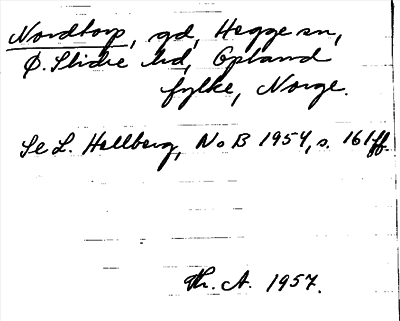 Nordtorp, gd, Hegge sn,
Ø. Slidre hd, Opland
fylke, Norge.
Se L. Hellberg, NoB 1954, s. 161ff.
Th. A. 1957.